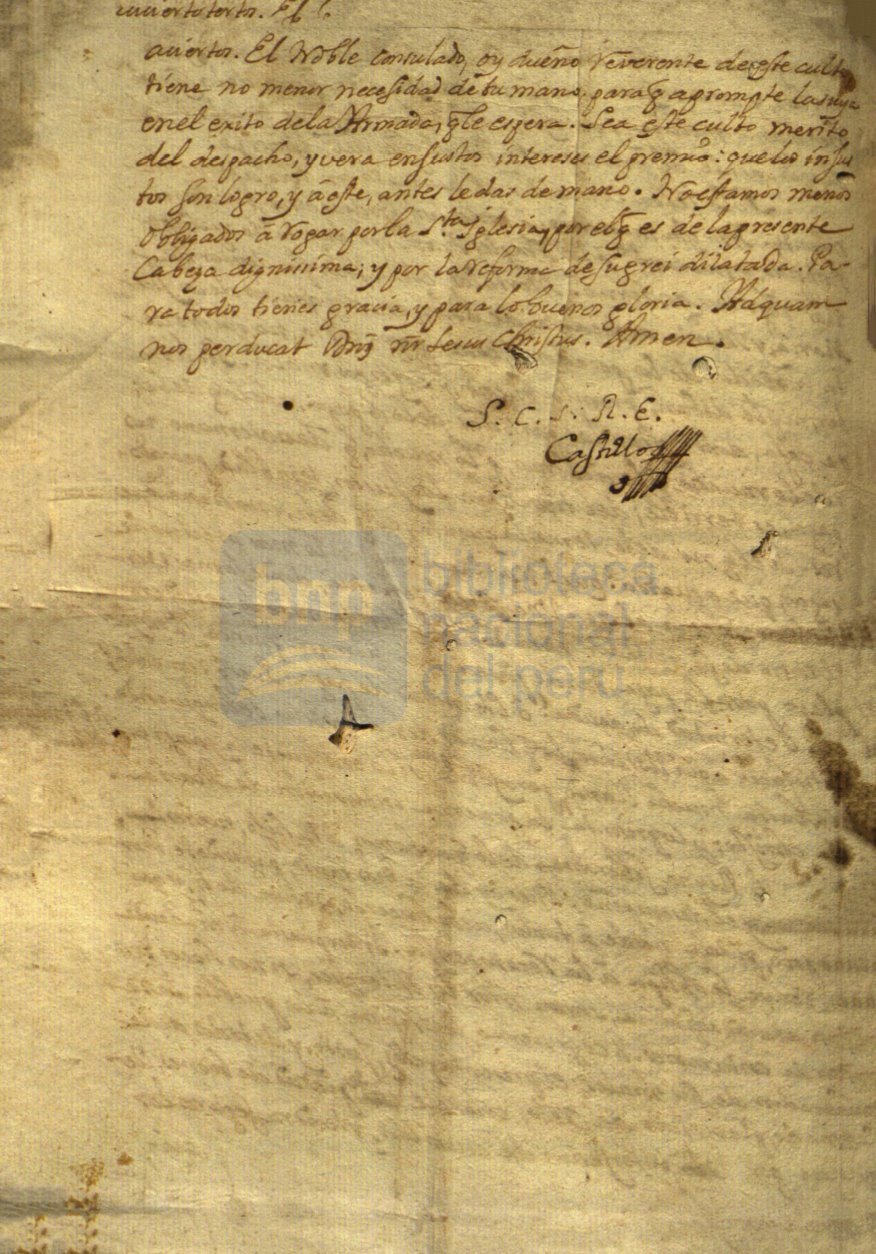 aviertos. El Noble consulado, oy dueño reverente de este culto
tiene no menor necesidad de tu mano, para q̃ aprompte la suya
en el exito de la Armada, q̃ le espera. Sea este culto merito
del despacho, y vera en sus tos intereses el premio: que los insus
tos son logro, y á este, antes le das de mano. No estamos menos
obligados á rogar por la S.ta Iglesia, por el q̃ es de la presente
Cabeza dignissima; y por la reforma de su grei dilatada. Pa-
ra todos tienes gracia, y para los buenos gloria. Ad quam
nos perducat Dñs ñr Iesus Christus. Amen.
S. C. S. R. E.
Castillo
bnp biblioteca
nacional
del perú